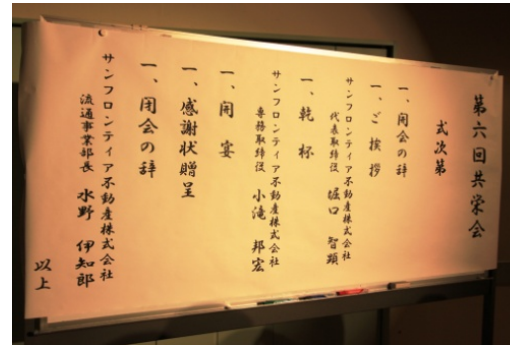 第六回共栄会
式次第
一、開会の辞
一、ご挨拶
サンフロンティア不動産株式会社
代表取締役 堀口 智顕
一、乾杯
サンフロンティア不動産株式会社
専務取締役 小滝 邦宏
一、開宴
一、感謝状贈呈
一、閉会の辞
サンフロンティア不動産株式会社
流通事業部長 水野 伊知郎
以上